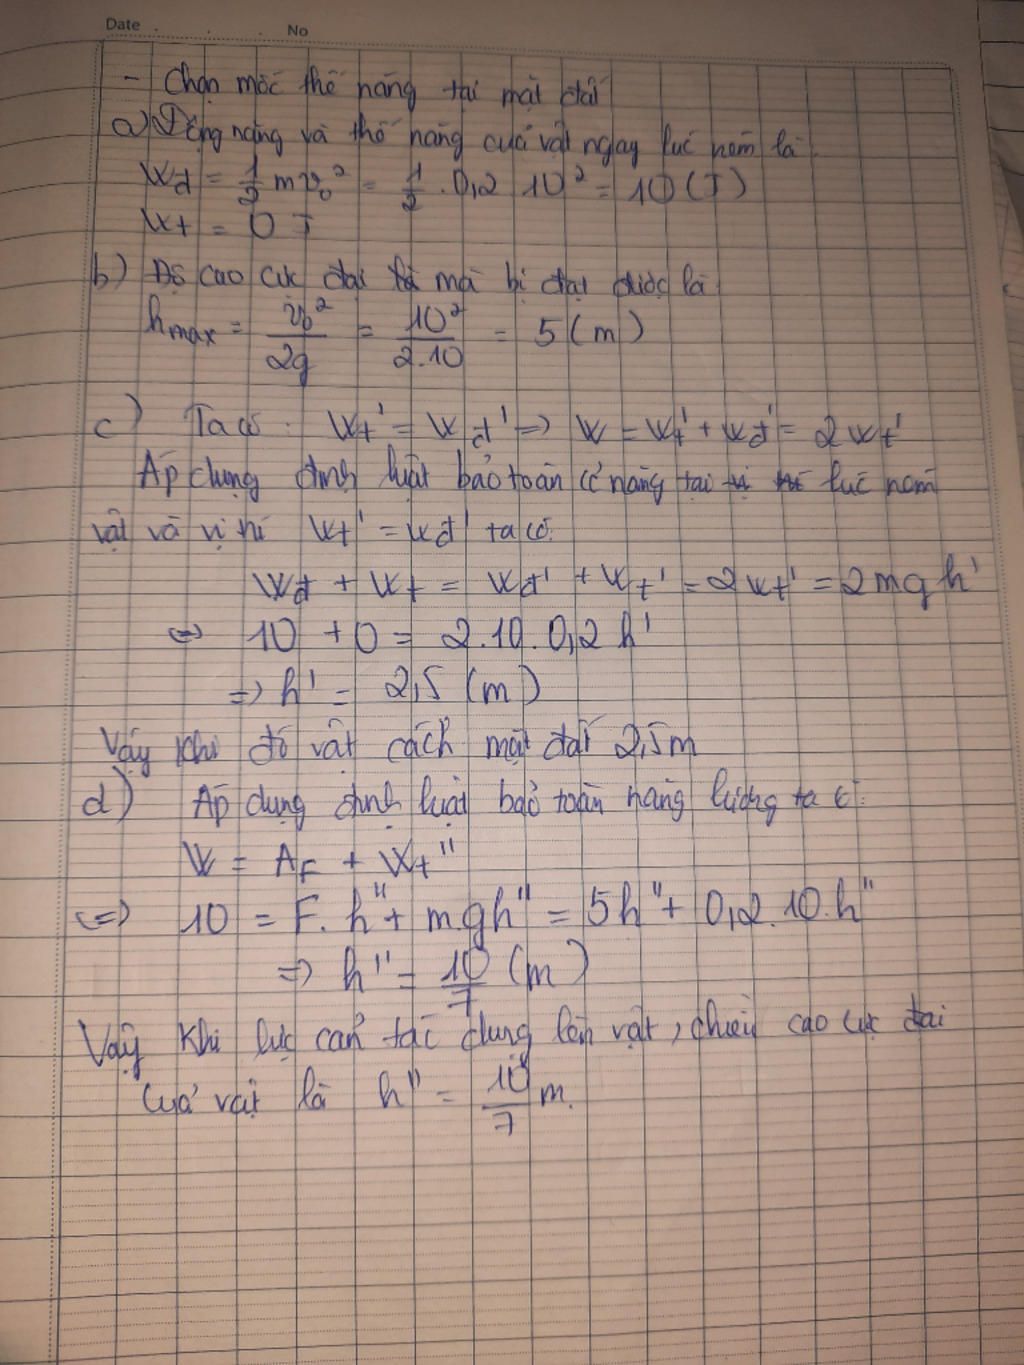 Date . . . No
- Chọn mốc thế năng tại mặt đất
a) Động năng và thế năng của vật ngay lúc ném là
Wđ = 1/2 mv₀² = 1/2 . 0,2 10² = 10 (J)
Wt = 0 J
b) Độ cao cực đại mà bi đạt được là
hmax = v₀²/2g = 10²/2.10 = 5 (m)
c) Ta có : Wt' = Wđ' => W = Wt' + Wđ' = 2Wt'
Áp dụng định luật bảo toàn cơ năng tại lúc ném
vật và vị trí Wt' = Wđ' ta có:
Wđ + Wt = Wđ' + Wt' = 2Wt' = 2mgh'
<=> 10 + 0 = 2.10.0,2 h'
=> h' = 2,5 (m)
Vậy khi đó vật cách mặt đất 2,5m
d) Áp dụng định luật bảo toàn năng lượng ta có:
W = AF + Wt''
<=> 10 = F.h'' + mgh'' = 5h'' + 0,2.10.h''
=> h'' = 10/7 (m)
Vậy khi lực cản tác dụng lên vật, chiều cao cực đại
của vật là h'' = 10/7 m.